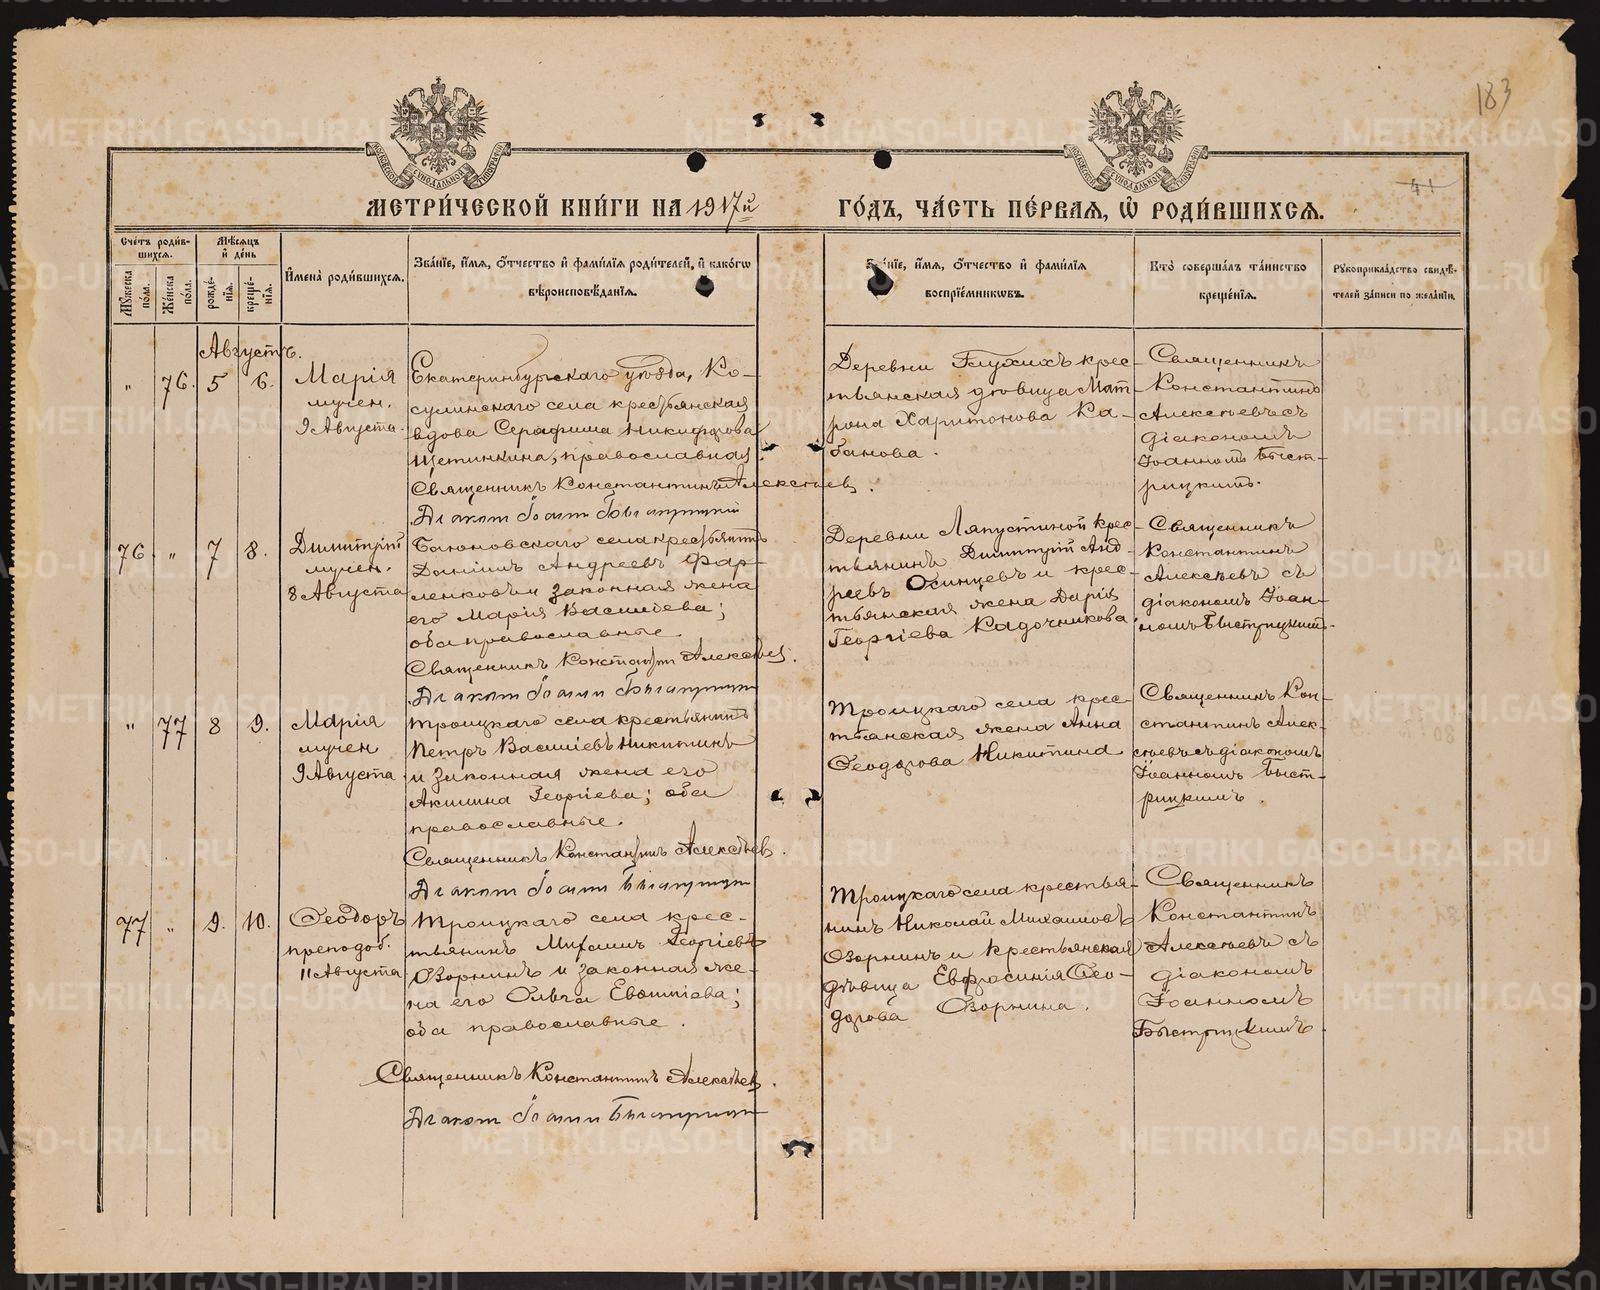 183
41
МЕТРИ́ЧЕСКОЙ КНИ́ГИ НА 1917й ГО́ДЪ, ЧА́СТЬ ПЕ́РВАЯ, Ѡ҆ РОДИ́ВШИХСЯ.
Сче́тъ роди́в-
шихся.
Мѣ́сяцъ
и҆ де́нь
Мꙋ́жеска по́ла.
Же́нска по́ла.
рожде́-
нїя.
креще́-
нїя.
И҆мена̀ роди́вшихся.
Зва́нїе, и҆́мя, ѻ҆́тчество и҆ фами́лїя роди́телей, и҆ како́гѡ
вѣроисповѣ́данїя.
и҆́мя, ѻ҆́тчество и҆ фами́лїя
воспрїе́мникѡвъ.
Кто̀ соверша́лъ та́инство
креще́нїя.
Рꙋкоприкла́дство свидѣ́-
телей за́писи по жела́нїю.
Августъ.
„ 76. 5 6.
Марія
мучен.
9 Августа.
Екатеринбургскаго уѣзда, Ко-
сулинскаго села крестьянская
вдова Серафима Никифорова
Щетинкина, православная.
Священникъ Константинъ Алексѣевъ.
Діаконъ Іоаннъ Быстрицкій
Деревни Глухихъ крес-
тьянская дѣвица Мат-
рона Харитонова Ка-
банова.
Священникъ
Константинъ
Алексѣевъ съ
діакономъ
Іоанномъ Быст-
рицкимъ.
76. „ 7 8.
Димитрій
мучен.
8 Августа
села крестьянинъ
Андреевъ
и законная жена
его Марія Васильева;
оба православные.
Священникъ Константинъ Алексѣевъ.
Діаконъ Іоаннъ Быстрицкій
Деревни Ляпустиной крес-
тьянинъ Димитрій Анд-
реевъ Осинцевъ и крес-
тьянская жена Дарія
Георгіева Кадочникова
Священникъ
Константинъ
Алексѣевъ съ
діакономъ Іоан-
номъ Быстрицкимъ.
„ 77 8 9.
Марія
мучен
9 Августа
Троицкаго села крестьянинъ
Петръ Васильевъ Никитинъ
и законная жена его
Акилина Георгіева; оба
православные.
Священникъ Константинъ Алексѣевъ.
Діаконъ Іоаннъ Быстрицкій
Троицкаго села крес-
тьянская жена Анна
Ѳеодорова Никитина
Священникъ Кон-
стантинъ Алек-
сѣевъ съ діакономъ
Іоанномъ Быст-
рицкимъ.
77 „ 9. 10.
Ѳеодоръ
преподоб.
11 Августа
Троицкаго села крес-
тьянинъ Михаилъ Георгіевъ
Озорнинъ и законная же-
на его Ольга Евѳиміева;
оба православные.
Священникъ Константинъ Алексѣевъ.
Діаконъ Іоаннъ Быстрицкій
Троицкаго села крестья-
нинъ Николай Михаиловъ
Озорнинъ и крестьянская
дѣвица Евфросинія Ѳео-
дорова Озорнина.
Священникъ
Константинъ
Алексѣевъ съ
діакономъ
Іоанномъ
Быстрицкимъ
METRIKI.GASO-URAL.RU